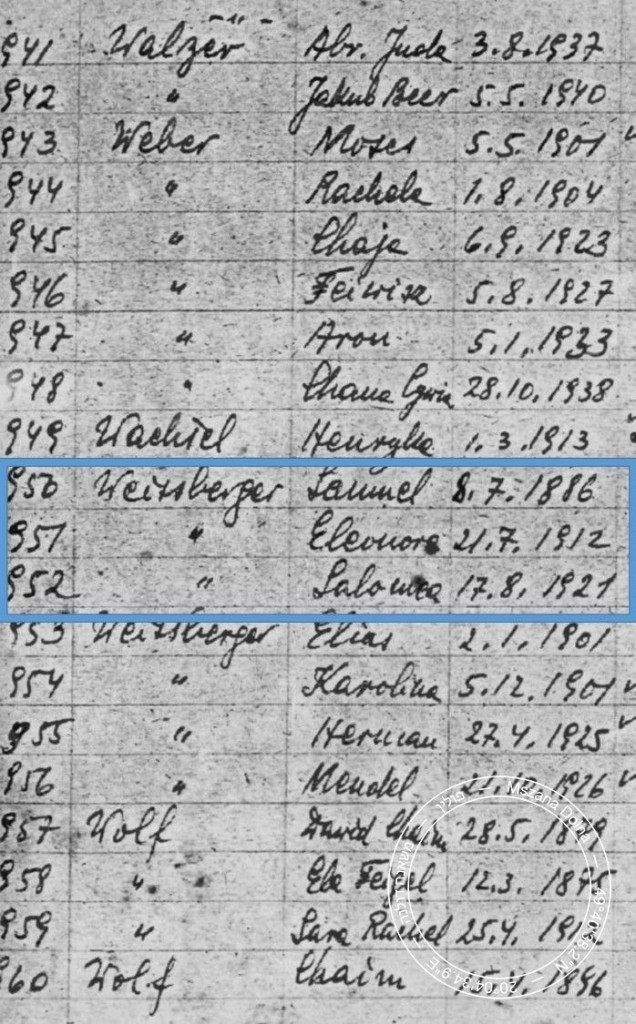 941 Walzer Abr. Juda 3.8.1937
942 " Jakub Beer 5.5.1940
943 Weber Moses 5.5.1901 v
944 " Rachela 1.8.1904
945 " Chaja 6.9.1923
946 " Feiwisz 5.8.1927
947 " Aron 5.1.1933
948 " Chana Cywia 28.10.1938
949 Wachtel Henryka 1.3.1913
950 Weitsberger Samuel 8.7.1886
951 " Eleonora 21.7.1912
952 " Salomea 17.8.1921
953 Weitsberger Elias 2.1.1901
954 " Karolina 5.12.1901 v
955 " Herman 27.4.1925 v
956 " Mendel 1926 v
957 Wolf Dawid Chaim 28.5.
958 " Feigel 12.3.
959 " Sara Rachel 25.4.
960 Wolf Chaim 1896
Mszana Dolna — 49°40'39.2"N 20°04'34.9"E